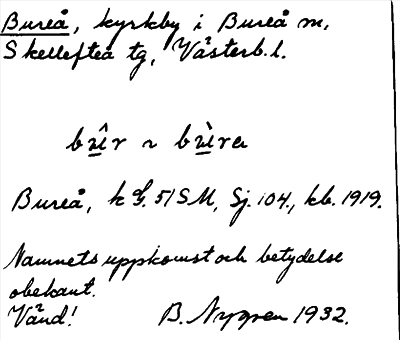 Bureå, kyrkby i Bureå sn,
Skellefteå tg, Västerb. l.
Bureå, k 51 SM, Sj. 104, kb. 1919.
Namnets uppkomst och betydelse
obekant.
Vänd! B. Nygren 1932.